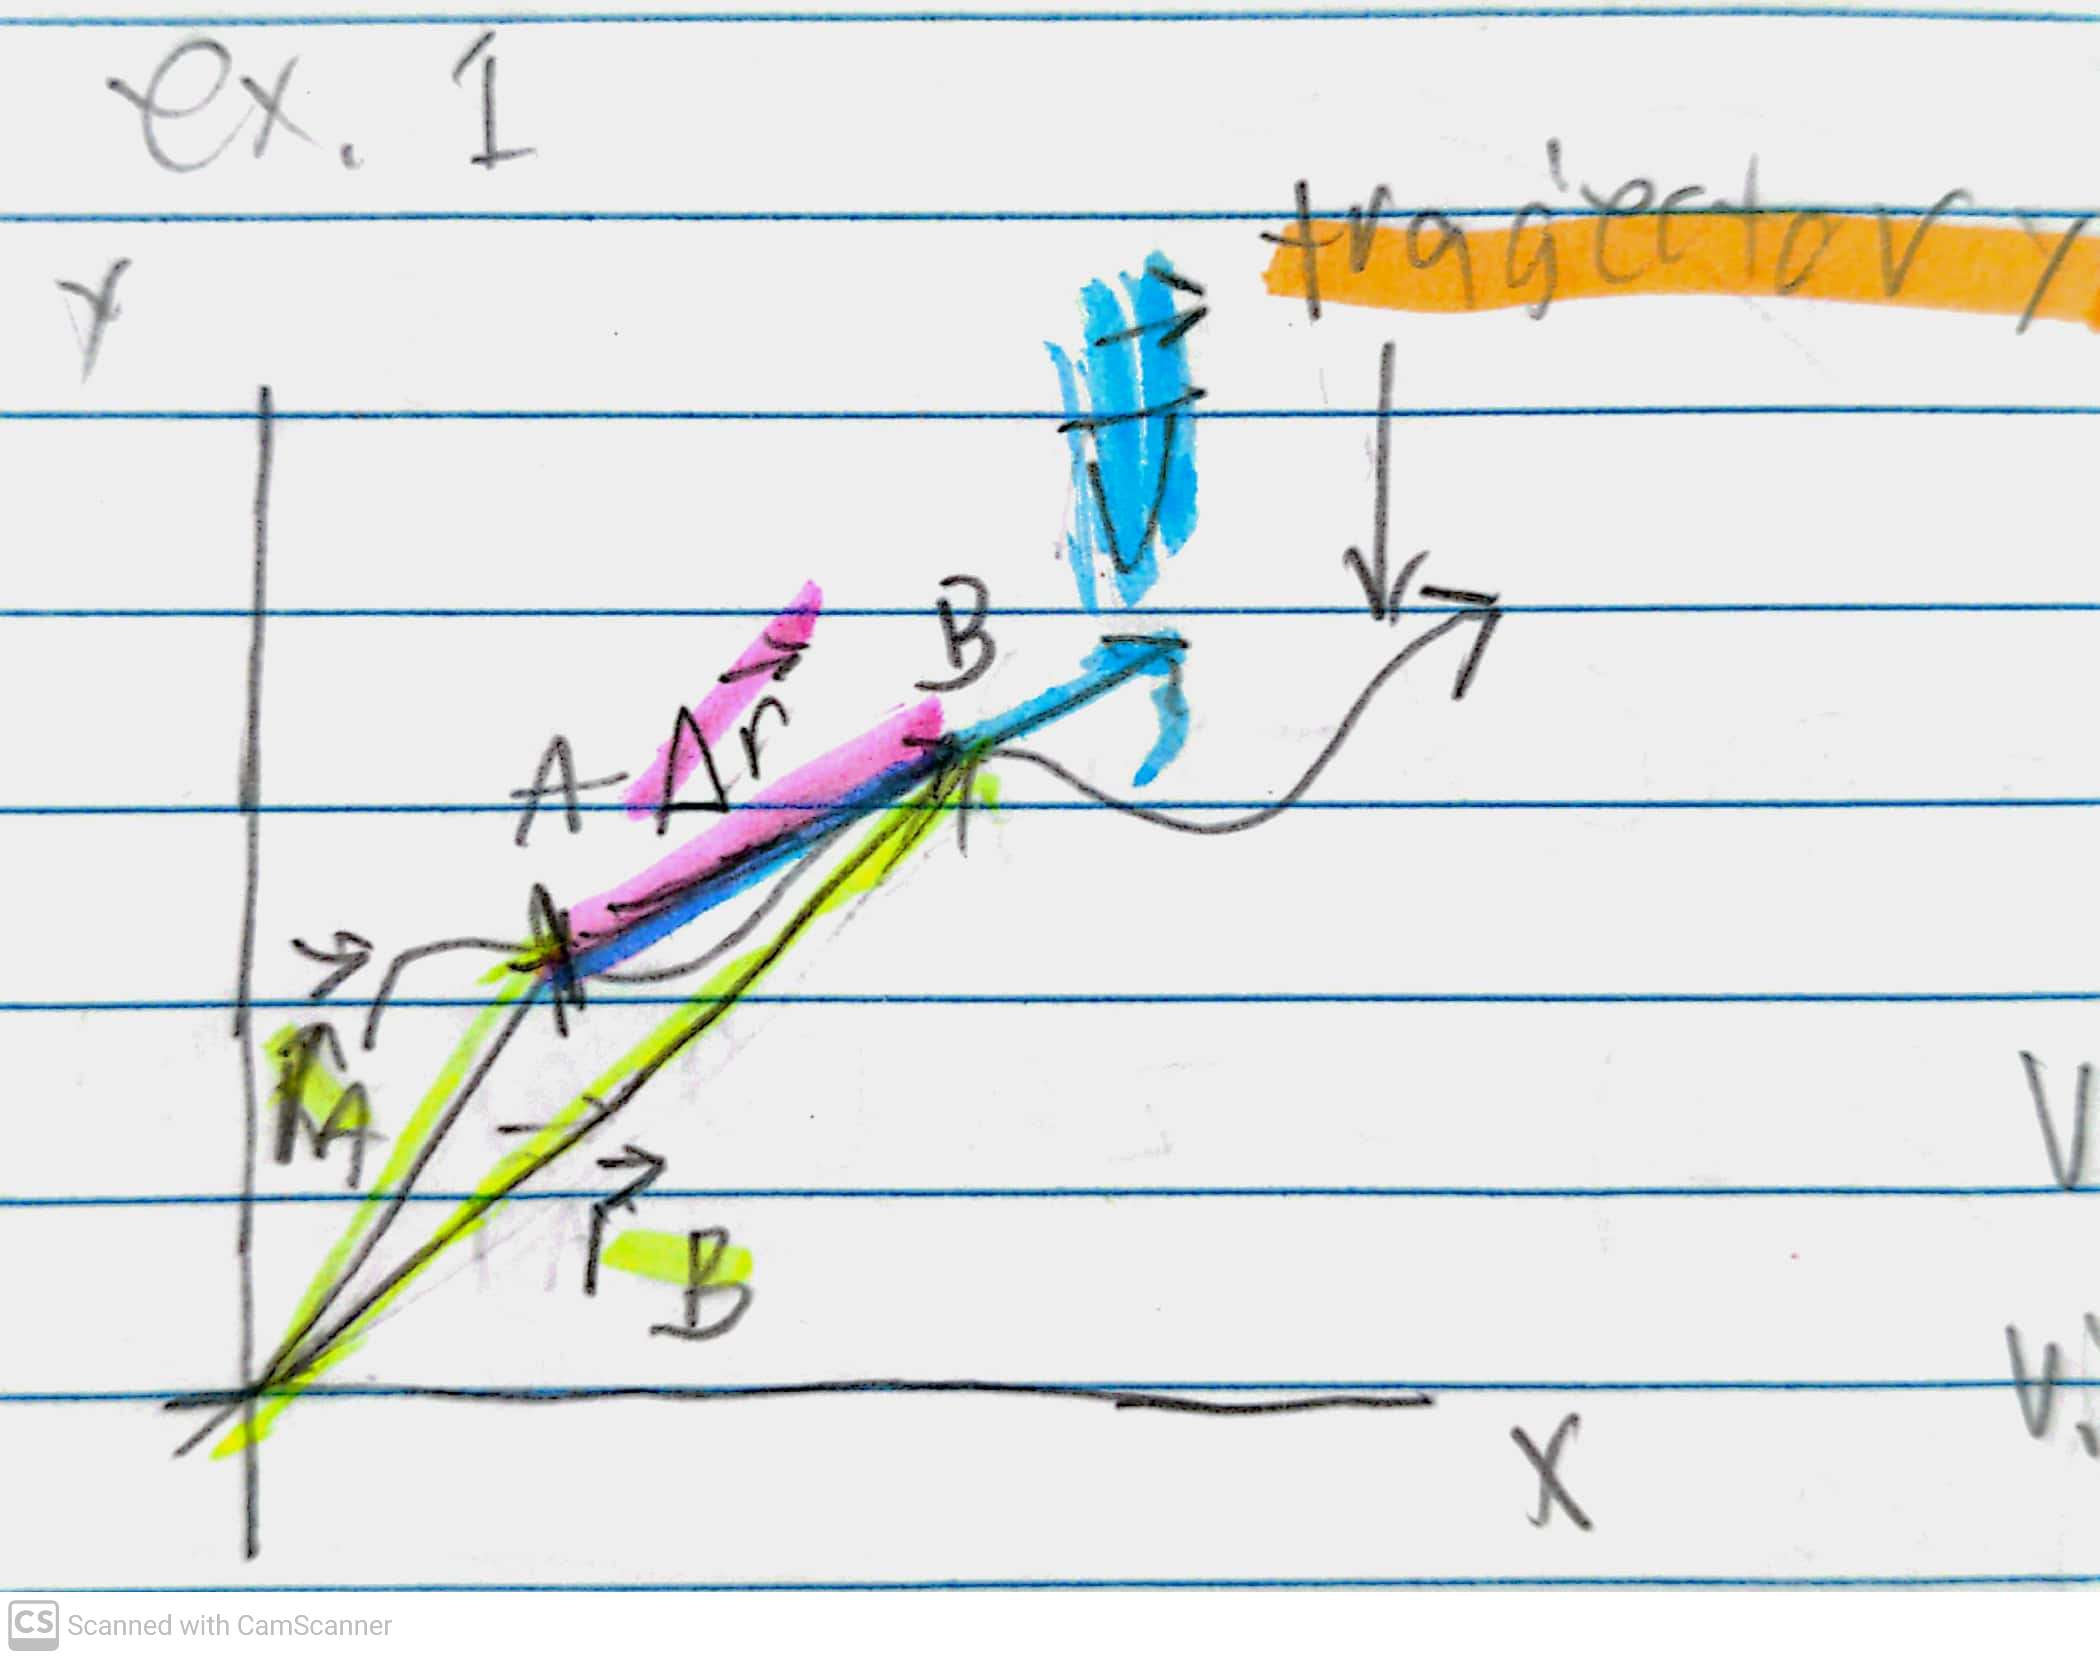 ex. 1
trajectory
Y
V
B
A
Δr
r A
r B
V
V
X
CS Scanned with CamScanner